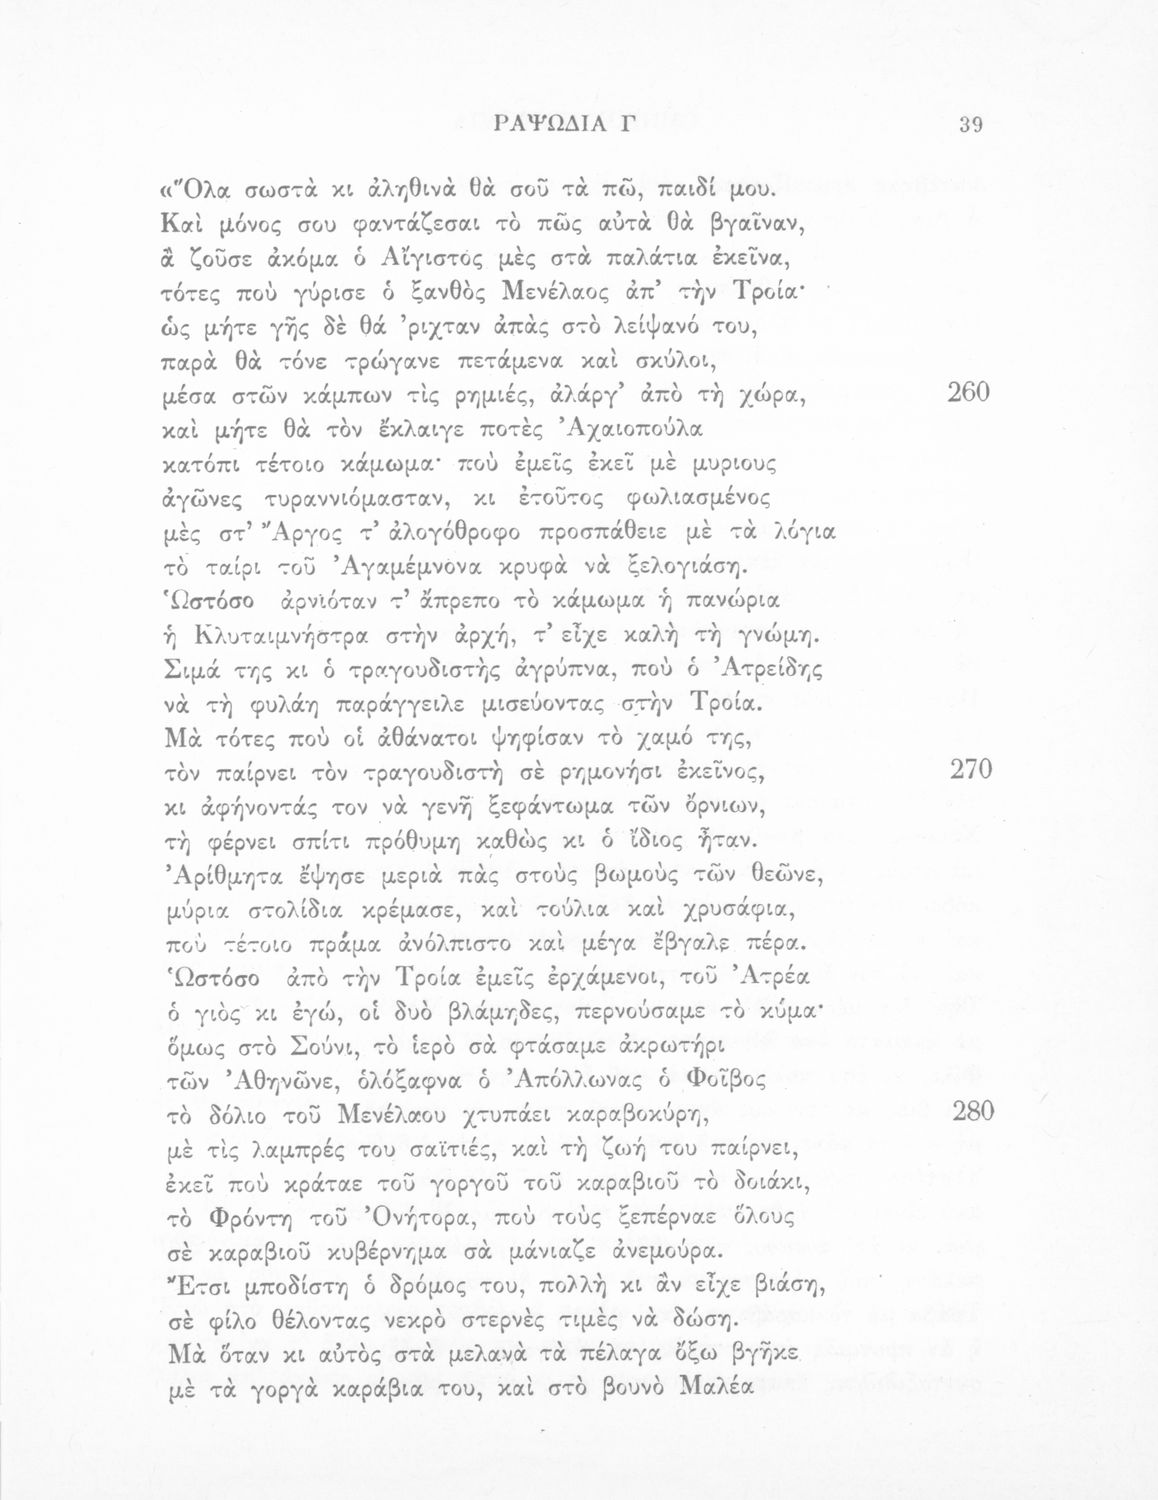 ΡΑΨΩΔΙΑ Γ 39
«Ὅλα σωστὰ κι ἀληθινὰ θὰ σοῦ τὰ πῶ, παιδί μου.
Καὶ μόνος σου φαντάζεσαι τὸ πῶς αὐτὰ θὰ βγαῖναν,
ἂ ζοῦσε ἀκόμα ὁ Αἴγιστος μὲς στὰ παλάτια ἐκεῖνα,
τότες ποὺ γύρισε ὁ ξανθὸς Μενέλαος ἀπ’ τὴν Τροία·
ὡς μήτε γῆς δὲ θά ’ριχταν ἀπὰς στὸ λείψανό του,
παρὰ θὰ τόνε τρώγανε πετάμενα καὶ σκύλοι,
μέσα στῶν κάμπων τὶς ρημιές, ἀλάργ’ ἀπὸ τὴ χώρα, 260
καὶ μήτε θὰ τὸν ἔκλαιγε ποτὲς Ἀχαιοπούλα
κατόπι τέτοιο κάμωμα· ποὺ ἐμεῖς ἐκεῖ μὲ μυριους
ἀγῶνες τυραννιόμασταν, κι ἐτοῦτος φωλιασμένος
μὲς στ’ Ἄργος τ’ ἀλογόθροφο προσπάθειε μὲ τὰ λόγια
τὸ ταίρι τοῦ Ἀγαμέμνονα κρυφὰ νὰ ξελογιάση.
Ὡστόσο ἀρνιόταν τ’ ἄπρεπο τὸ κάμωμα ἡ πανώρια
ἡ Κλυταιμνήστρα στὴν ἀρχή, τ’ εἶχε καλὴ τὴ γνώμη.
Σιμά της κι ὁ τραγουδιστὴς ἀγρύπνα, ποὺ ὁ Ἀτρείδης
νὰ τὴ φυλάη παράγγειλε μισεύοντας στὴν Τροία.
Μὰ τότες ποὺ οἱ ἀθάνατοι ψηφίσαν τὸ χαμό της,
τὸν παίρνει τὸν τραγουδιστὴ σὲ ρημονήσι ἐκεῖνος, 270
κι ἀφήνοντάς τον νὰ γενῆ ξεφάντωμα τῶν ὄρνιων,
τὴ φέρνει σπίτι πρόθυμη καθὼς κι ὁ ἴδιος ἦταν.
Ἀρίθμητα ἔψησε μεριὰ πὰς στοὺς βωμοὺς τῶν θεῶνε,
μύρια στολίδια κρέμασε, καὶ τούλια καὶ χρυσάφια,
ποὺ τέτοιο πράμα ἀνόλπιστο καὶ μέγα ἔβγαλε πέρα.
Ὡστόσο ἀπὸ τὴν Τροία ἐμεῖς ἐρχάμενοι, τοῦ Ἀτρέα
ὁ γιὸς κι ἐγώ, οἱ δυὸ βλάμηδες, περνούσαμε τὸ κύμα·
ὅμως στὸ Σούνι, τὸ ἱερὸ σὰ φτάσαμε ἀκρωτήρι
τῶν Ἀθηνῶνε, ὁλόξαφνα ὁ Ἀπόλλωνας ὁ Φοῖβος
τὸ δόλιο τοῦ Μενέλαου χτυπάει καραβοκύρη, 280
μὲ τὶς λαμπρές του σαϊτιές, καὶ τὴ ζωή του παίρνει,
ἐκεῖ ποὺ κράταε τοῦ γοργοῦ τοῦ καραβιοῦ τὸ δοιάκι,
τὸ Φρόντη τοῦ Ὀνήτορα, ποὺ τοὺς ξεπέρναε ὅλους
σὲ καραβιοῦ κυβέρνημα σὰ μάνιαζε ἀνεμούρα.
Ἔτσι μποδίστη ὁ δρόμος του, πολλὴ κι ἂν εἶχε βιάση,
σὲ φίλο θέλοντας νεκρὸ στερνὲς τιμὲς νὰ δώση.
Μὰ ὅταν κι αὐτὸς στὰ μελανὰ τὰ πέλαγα ὄξω βγῆκε
μὲ τὰ γοργὰ καράβια του, καὶ στὸ βουνὸ Μαλέα